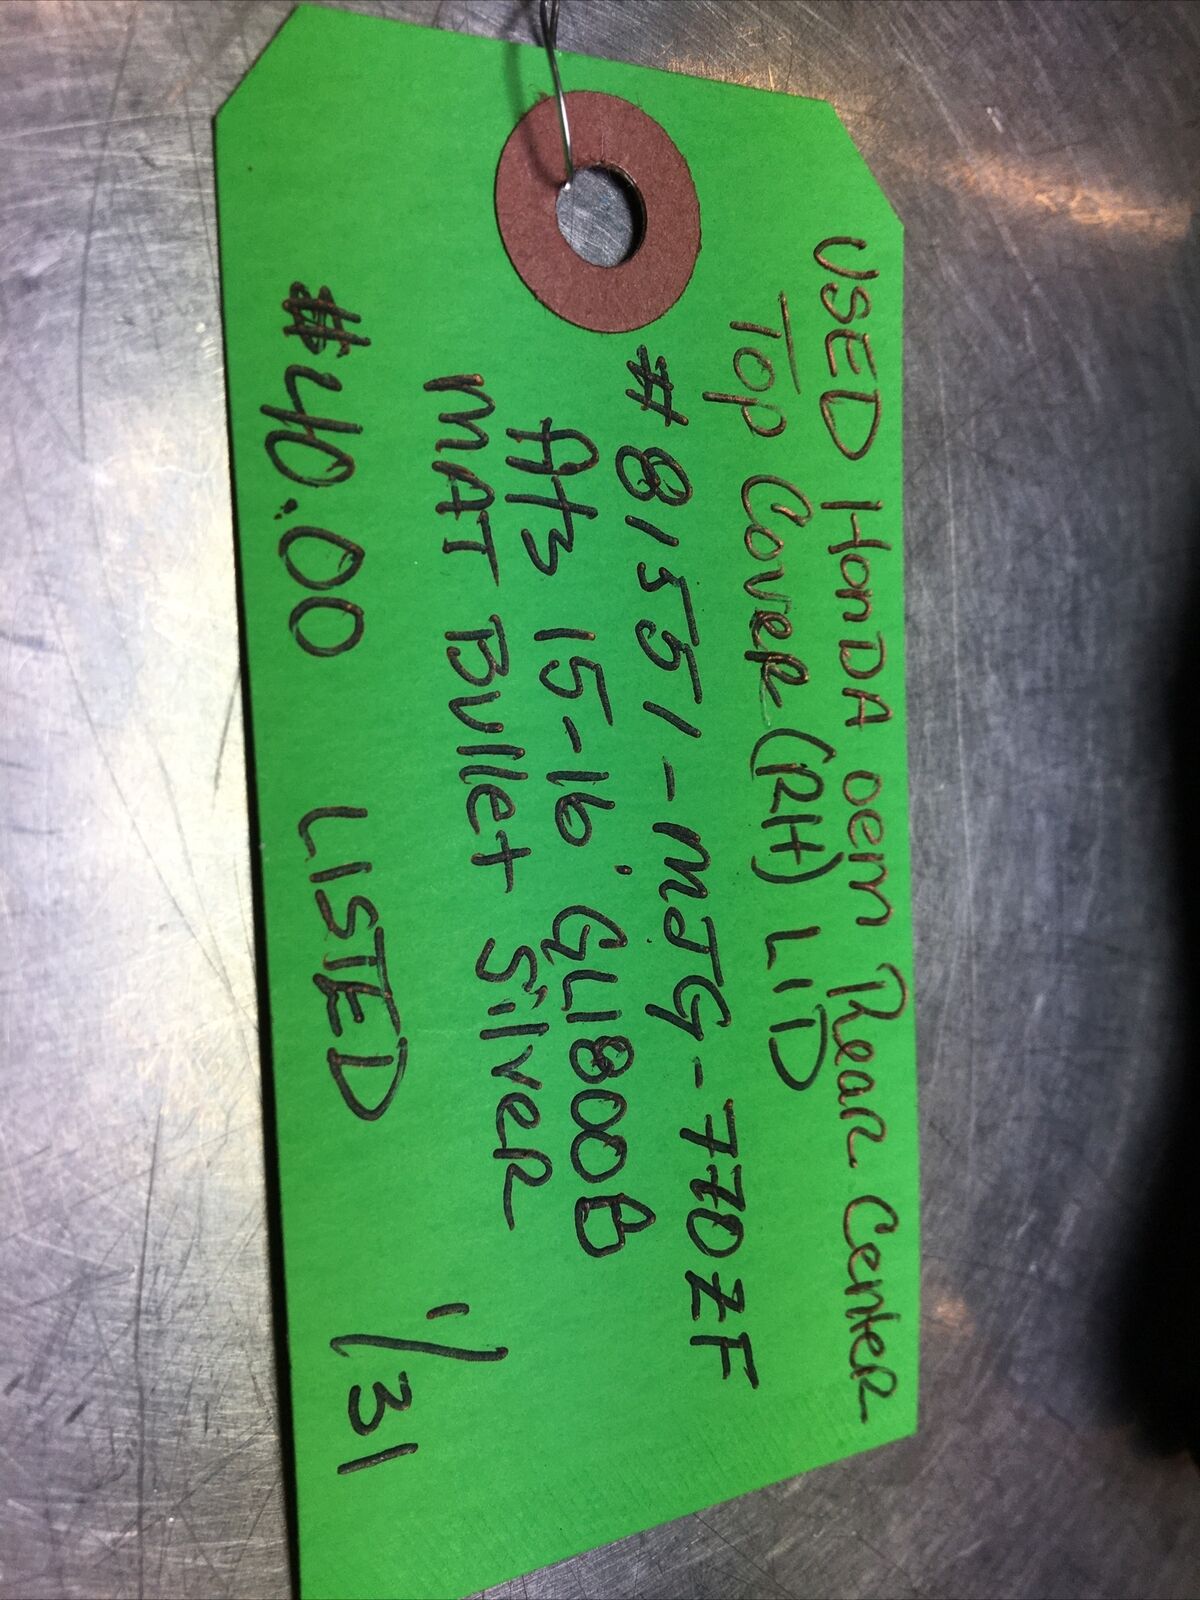 USED HonDA oem Rear Center
Top Cover (RH) LID
#81551-MJG-770ZF
Fits 15-16 GL1800B
MAT Bullet Silver
$40.00 LISTED 1/31